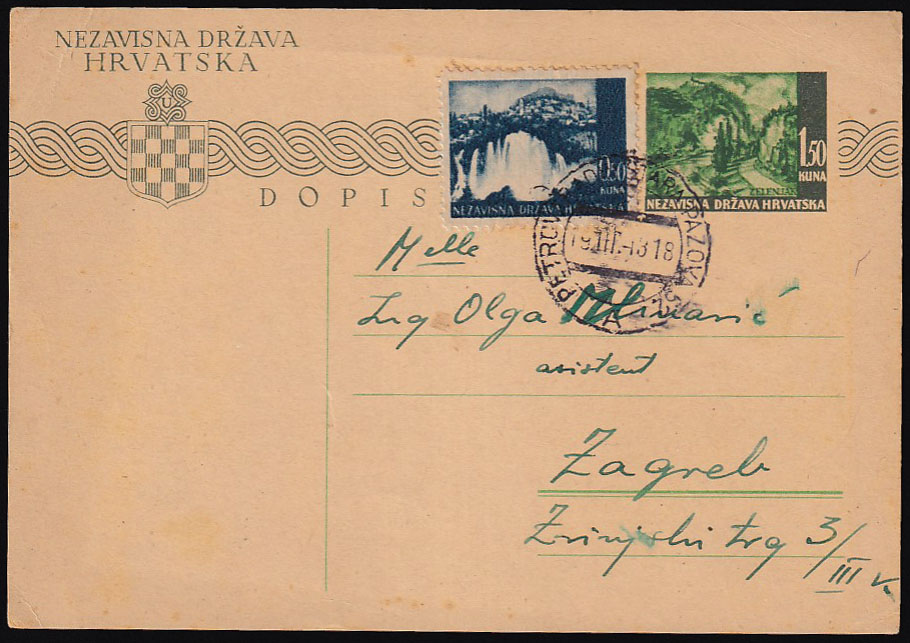 NEZAVISNA DRŽAVA
HRVATSKA
U
DOPIS
0.50
KUNA
NEZAVISNA DRŽAVA HRVATSKA
1.50
KUNA
ZELENJAK
NEZAVISNA DRŽAVA HRVATSKA
19.III.-43 18
Melle
Ing Olga Mlinarić
asistent
Zagreb
Zrinjski trg 3/
III k.